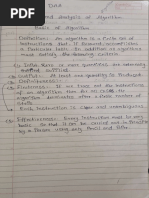 DAA
Advanced Analysis of Algorithm
Basis of Algorithm
Definition:- An algorithm is a finite set of
instructions that, if followed, accomplishes
a particular task. In addition, an algorithm
must satisfy the following criteria.
Input Zero or more quantities are externally
Output :- At least one quantity is produced
Definiteness:-
Finiteness: If we
an algorithm then for all cases the
algorithm terminates after a finite number
of steps
Each instruction is clear and unambiguous
Effectiveness: Every instruction must be very
basic so that it can be carried out
by a person using only pencil and